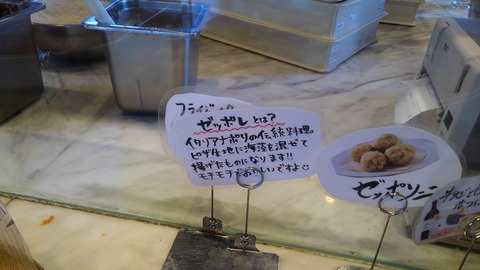 フライド
ゼッポレとは?
イタリアナポリの伝統料理。
ピザ生地に海藻を混ぜて
揚げたものになります!!
モチモチでおいしいですよ☺
ゼッポリーニ